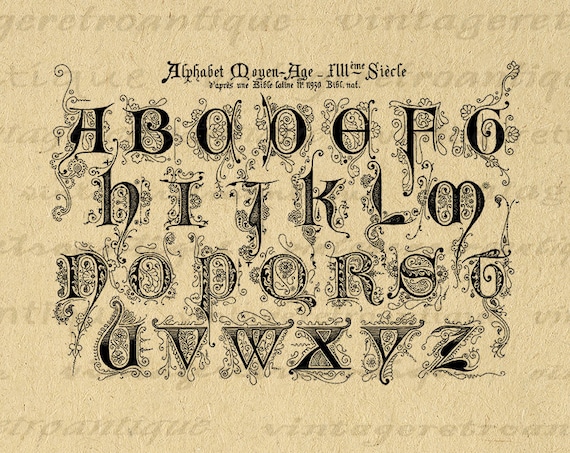 Alphabet Moyen-Age _ XIIIème Siècle
d'après une Bible latine No. 11930. Bibl. nat.
A B C D E F G
H I J K L M
N O P Q R S T
U V W X Y Z
vintageretroantique